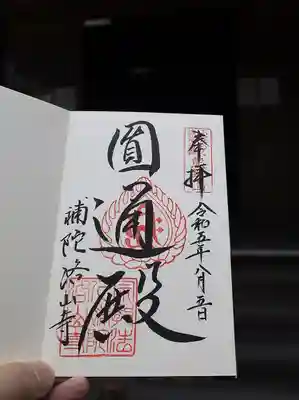 奉拝
令和五年八月五日
圓通殿
補陀洛山寺